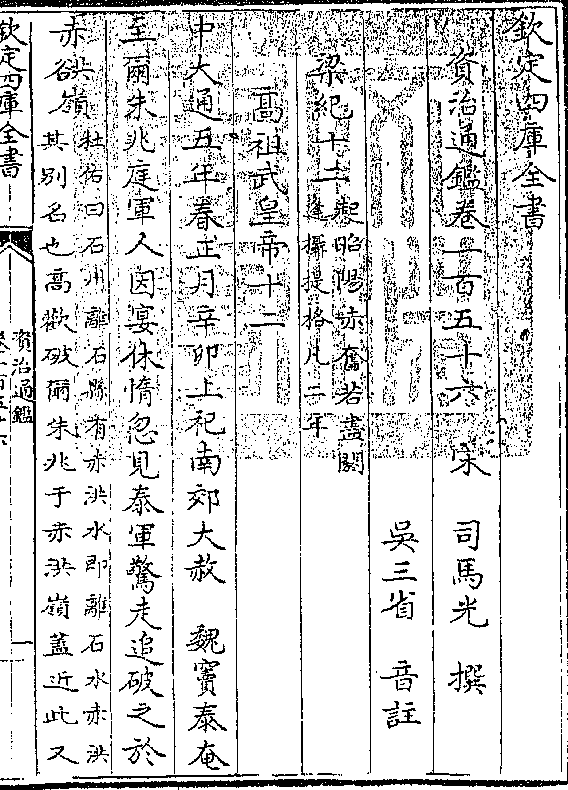 欽定四庫全書
資治通鑑卷一百五十六 宋 司馬光 撰
吳三省 音註
梁紀十二 起昭陽赤奮若盡閼
逢攝提格凡二年
高祖武皇帝十二
中大通五年春正月辛卯上祀南郊大赦 魏竇泰奄
至爾朱兆庭軍人因宴休惰忽見泰軍驚走追破之於
赤谼嶺 杜佑曰石州離石縣有赤洪水即離石水赤洪
其別名也高歡破爾朱兆于赤洪嶺蓋近此又
欽定四庫全書
資治通鑑